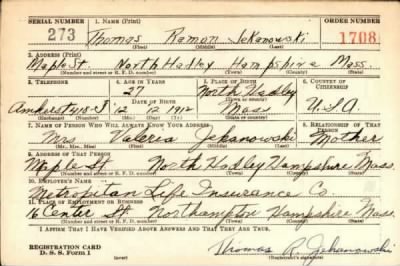 SERIAL NUMBER 1. NAME (Print) ORDER NUMBER
273 Thomas Ramon Jekanowski 1708
(First) (Middle) (Last)
2. ADDRESS (Print)
Maple St. North Hadley Hampshire Mass.
(Number and street or R. F. D. number) (Town) (County) (State)
3. TELEPHONE 4. AGE IN YEARS 5. PLACE OF BIRTH 6. COUNTRY OF CITIZENSHIP
27 North Hadley
DATE OF BIRTH (Town or county)
Amherst 12 12 1912 Mass U.S.A.
(Exchange) (Number) (Mo.) (Day) (Yr.) (State or country)
7. NAME OF PERSON WHO WILL ALWAYS KNOW YOUR ADDRESS 8. RELATIONSHIP OF THAT PERSON
Mrs Valeria Jekanowski Mother
(Mr., Mrs., Miss) (First) (Middle) (Last)
9. ADDRESS OF THAT PERSON
Maple St North Hadley Hampshire Mass.
(Number and street or R. F. D. number) (Town) (County) (State)
10. EMPLOYER'S NAME
Metropolitan Life Insurance Co
11. PLACE OF EMPLOYMENT OR BUSINESS
16 Center St Northampton Hampshire Mass.
(Number and street or R. F. D. number) (Town) (County) (State)
I AFFIRM THAT I HAVE VERIFIED ABOVE ANSWERS AND THAT THEY ARE TRUE.
REGISTRATION CARD Thomas R. Jekanowski
D. S. S. Form 1 (Registrant's signature)